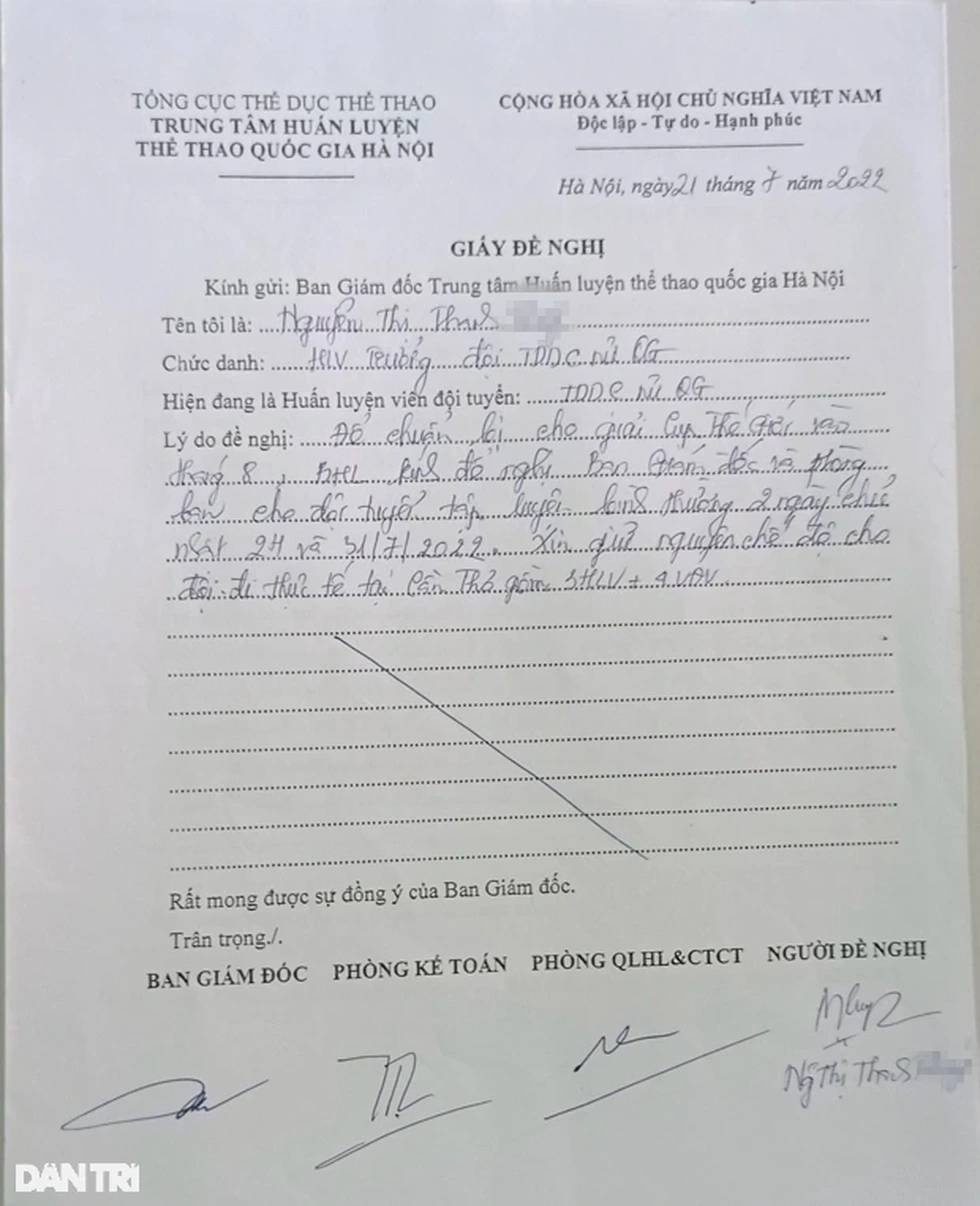 TỔNG CỤC THỂ DỤC THỂ THAO
TRUNG TÂM HUẤN LUYỆN
THỂ THAO QUỐC GIA HÀ NỘI
CỘNG HÒA XÃ HỘI CHỦ NGHĨA VIỆT NAM
Độc lập - Tự do - Hạnh phúc
Hà Nội, ngày 21 tháng 7 năm 2022
GIẤY ĐỀ NGHỊ
Kính gửi: Ban Giám đốc Trung tâm Huấn luyện thể thao quốc gia Hà Nội
Tên tôi là: Nguyễn Thị Thanh
Chức danh: HLV trưởng đội TDDC nữ QG
Hiện đang là Huấn luyện viên đội tuyển: TDDC Nữ QG
Lý do đề nghị: Để chuẩn bị cho giải Cup Thế Giới vào
tháng 8, BHL kính đề nghị Ban Giám đốc và phòng
ban cho đội tuyển tập luyện bình thường 2 ngày chủ
nhật 24 và 31/7/2022. Xin giữ nguyên chế độ cho
đội đi thực tế tại Cần Thơ gồm 3HLV + 4 VĐV
Rất mong được sự đồng ý của Ban Giám đốc.
Trân trọng./.
BAN GIÁM ĐỐC PHÒNG KẾ TOÁN PHÒNG QLHL&CTCT NGƯỜI ĐỀ NGHỊ
Ng Thị Thanh
DÂN TRÍ